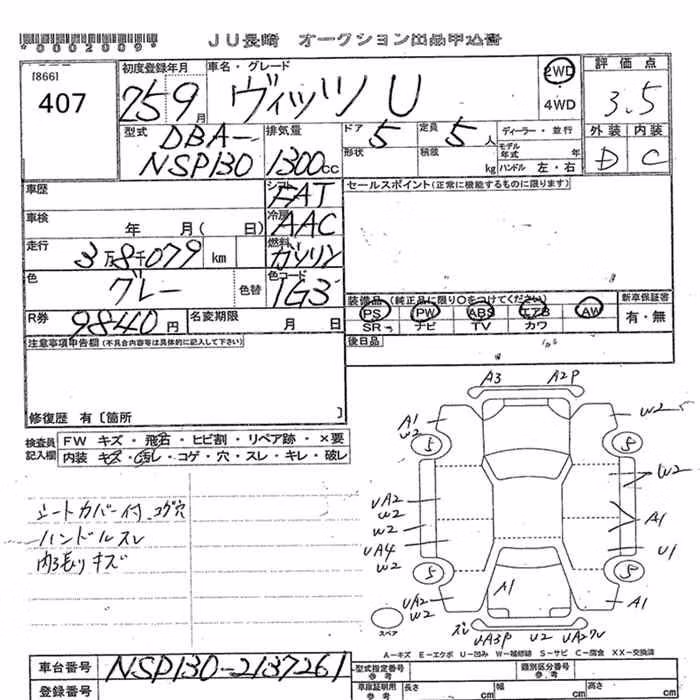 *0002009* JU長崎 オークション出品申込書
[866]
407
初度登録年月 車名・グレード 評価点
25 9月 ヴィッツ U 2WD 4WD 3.5
型式 DBA-NSP130
排気量 1300cc
ドア 5 定員 5人 ディーラー・並行
形状 積載 kg モデル年式 年
ハンドル 左・右
外装 内装
D C
車歴 シフト FAT セールスポイント(正常に機能するものに限ります)
車検 年 月( 日) 冷房 AAC
走行 3万8千079 km 燃料 ガソリン
色 グレー 色替 色コード 1G3
装備品(純正品に限り○をつけてください) 新車保証書
PS PW ABS エアB AW 有・無
SR ナビ TV カワ
R券 9840円 名変期限 月 日 後日品
注意事項申告欄(不具合内容等は具体的に記入して下さい)
修復歴 有〔箇所 〕
検査員記入欄 FW キズ・飛石・ヒビ割・リペア跡・×要
内装 キズ・汚レ・コゲ・穴・スレ・キレ・破レ
シートカバー付 コゲ穴
ハンドルスレ
内張りキズ
A3 A2P
A1 W2 W2
5 5
W2
UA2
W2 A1
W2
UA4 U1
W2
5 5
UA2 A1 A1
W2
スペア ズレ UA3P U2
A-キズ E-エクボ U-凹み W-補修跡 S-サビ C-腐食 XX-交換済
車台番号 NSP130-2137261 型式指定番号参考 類別区分番号参考
登録番号 車庫証明用参考 長さ cm 幅 cm 高さ cm